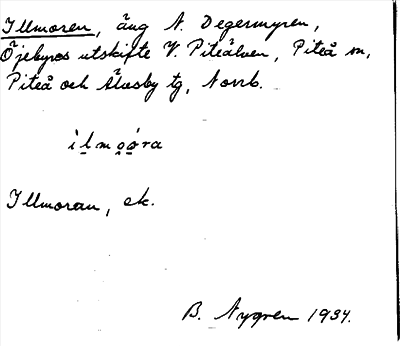 Illmoren, äng N. Degermyren,
Öjebyns utskifte V. Piteälven, Piteå sn,
Piteå och Älvsby tg, Norrb.
ìl̥mo̥ó̥ra
Illmoran, ek.
B. Nygren 1934.